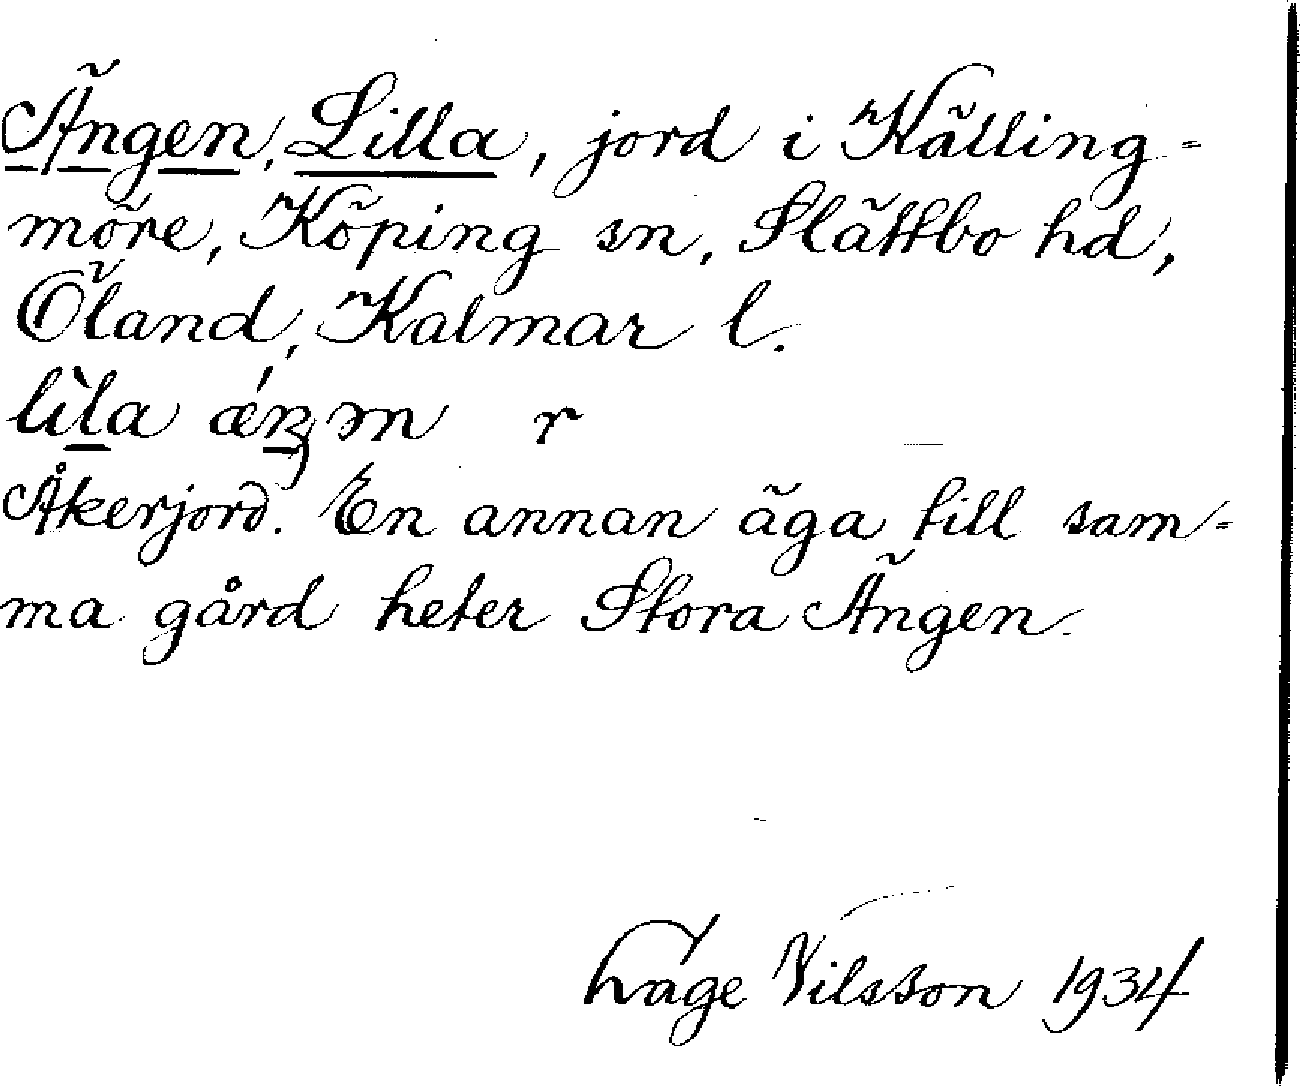 Ängen, Lilla, jord i Källing-
möre, Köping sn, Slättbo hd,
Öland, Kalmar l.
lìla ǽŋən r
Åkerjord. En annan äga till sam-
ma gård heter Stora Ängen.
Lage Nilsson 1934